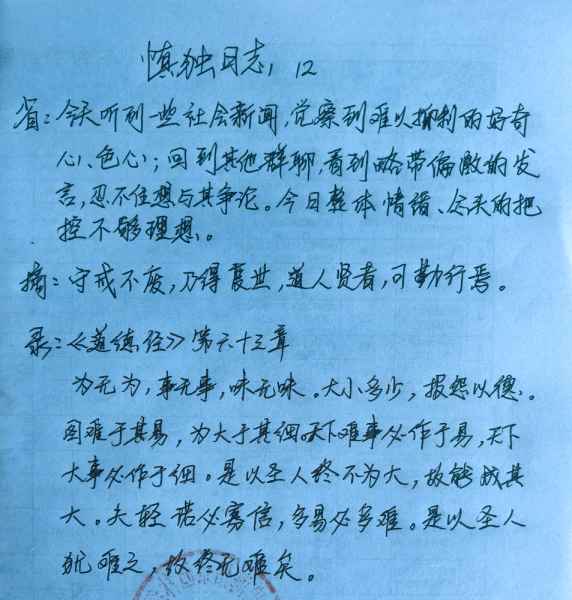 慎独日志,12
省:今天听到一些社会新闻,觉察到难以抑制的好奇
心、色心;回到其他群聊,看到略带偏激的发
言,忍不住想与其争论。今日整体情绪、念头的把
控不够理想。
摘:守戒不废,乃得度世,道人贤者,可勤行焉。
录:《道德经》第六十三章
为无为,事无事,味无味。大小多少,报怨以德。
图难于其易,为大于其细。天下难事必作于易,天下
大事必作于细。是以圣人终不为大,故能成其
大。夫轻诺必寡信,多易必多难。是以圣人
犹难之,故终无难矣。